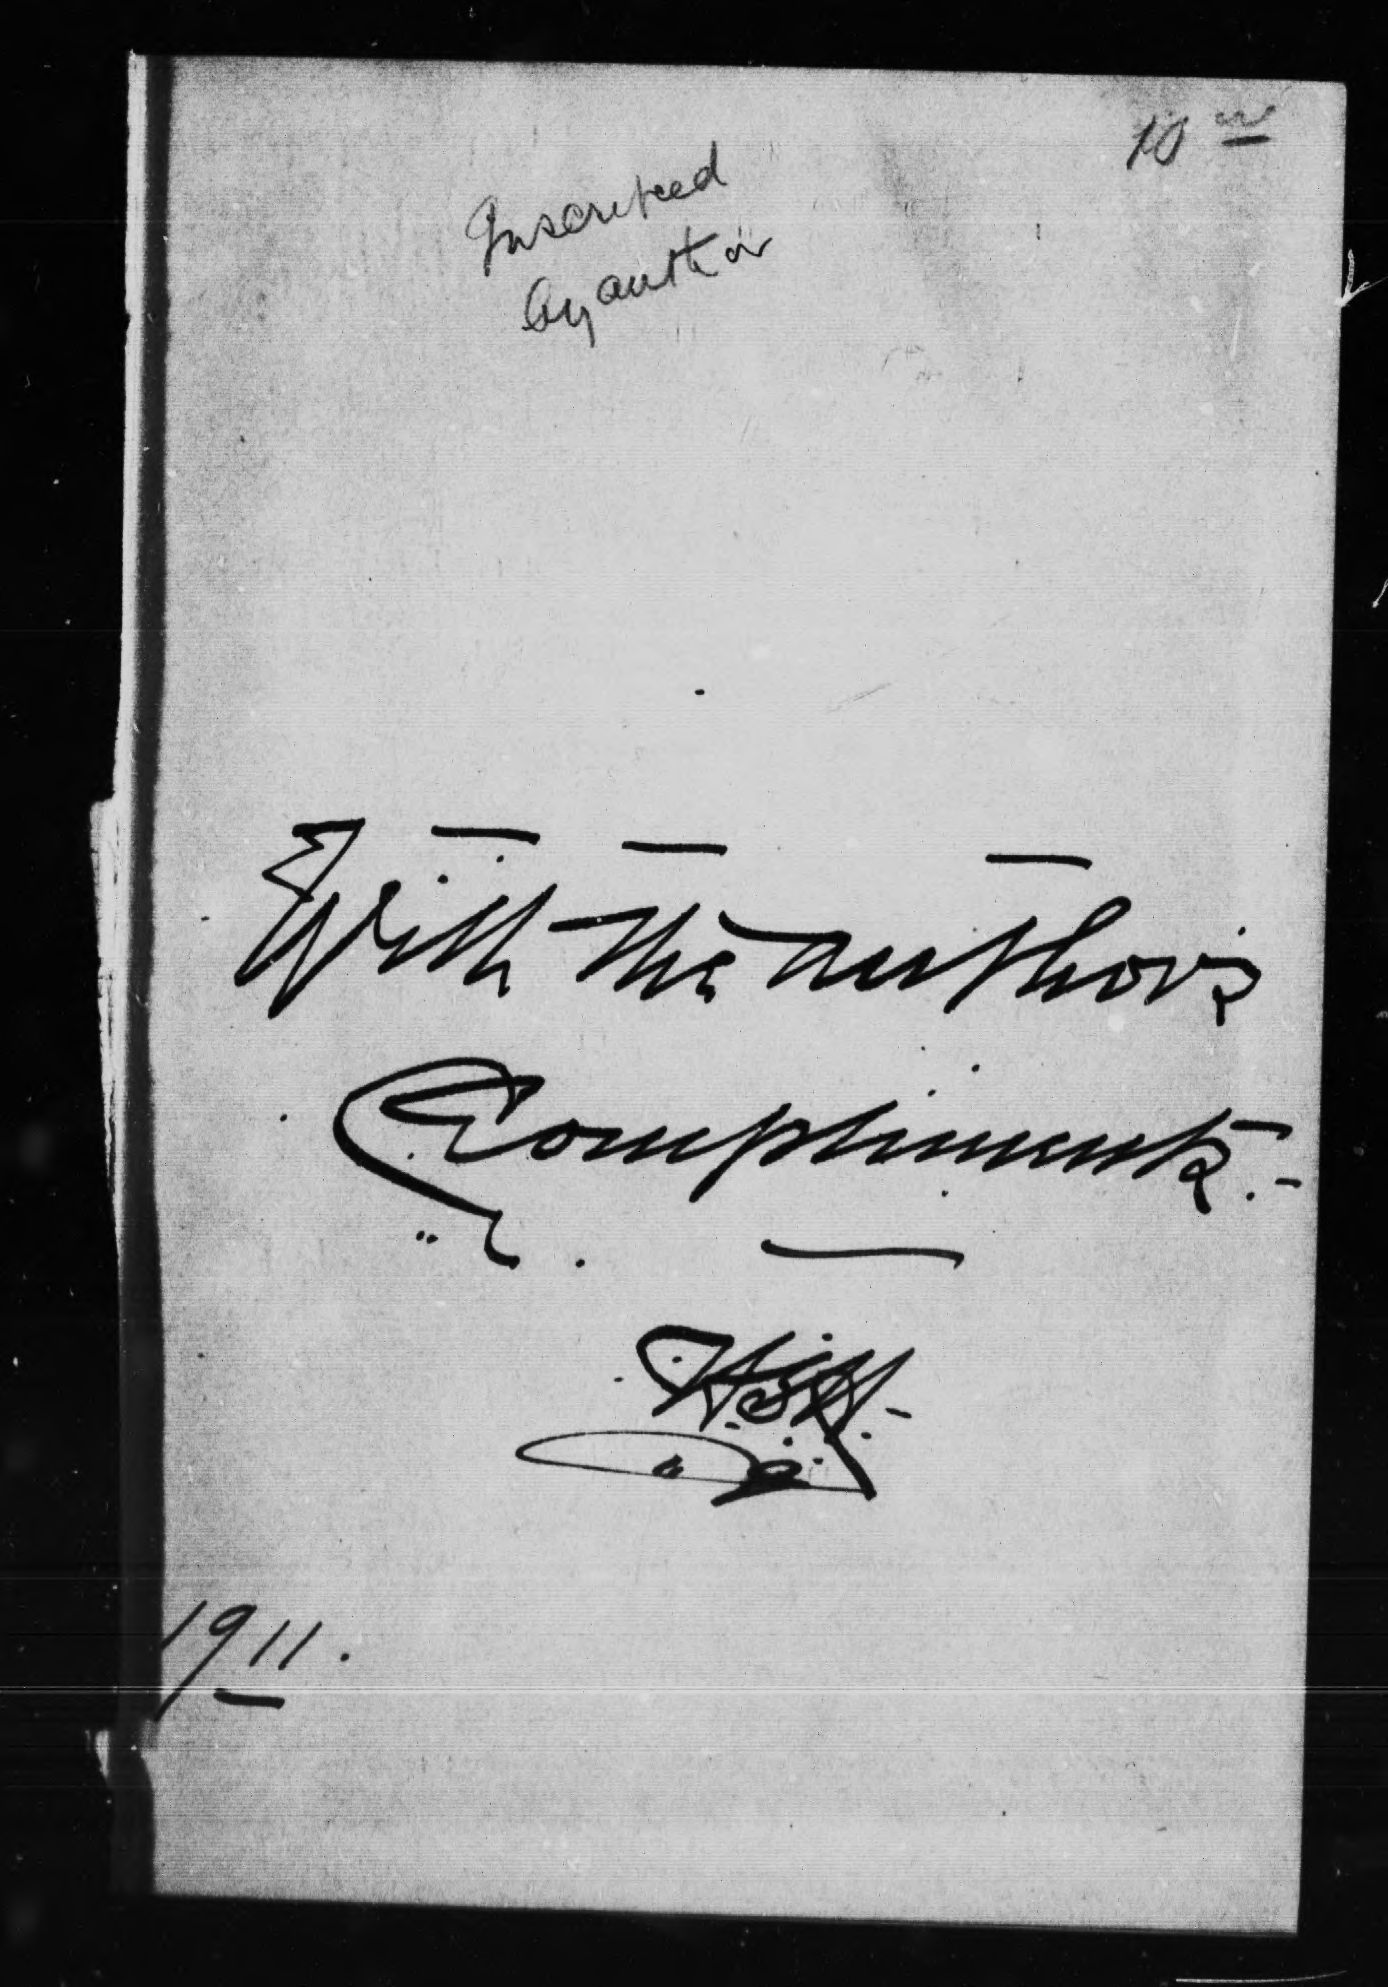 10 00
Inscribed
by author
With the author's
Compliments.-
1911.